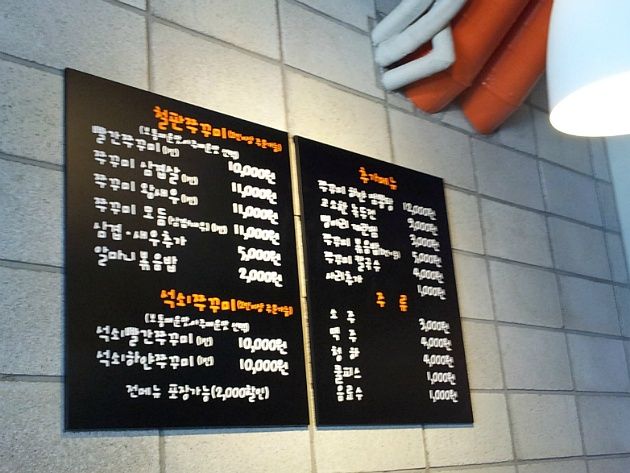 철판쭈꾸미(2인이상 주문가능)
(보통매운맛·아주매운맛 선택)
빨간쭈꾸미(1인) 10,000원
쭈꾸미 삼겹살(1인) 11,000원
쭈꾸미 왕새우(1인) 11,000원
쭈꾸미 모듬(삼겹+새우)(1인) 11,000원
삼겹·새우추가 5,000원
알마니볶음밥 2,000원
석쇠쭈꾸미(2인이상 주문가능)
(보통매운맛·아주매운맛 선택)
석쇠빨간쭈꾸미(1인) 10,000원
석쇠하얀쭈꾸미(1인) 10,000원
전메뉴 포장가능(2,000할인)
추가메뉴
쭈꾸미 하얀 짬뽕탕 12,000원
고소한 녹두전 9,000원
병아리 계란찜 3,000원
쭈꾸미 볶음밥 5,000원
쭈꾸미 칼국수 4,000원
사리추가 1,000원
주 류
소 주 3,000원
맥 주 4,000원
청 하 4,000원
쿨피스 1,000원
음료수 1,000원